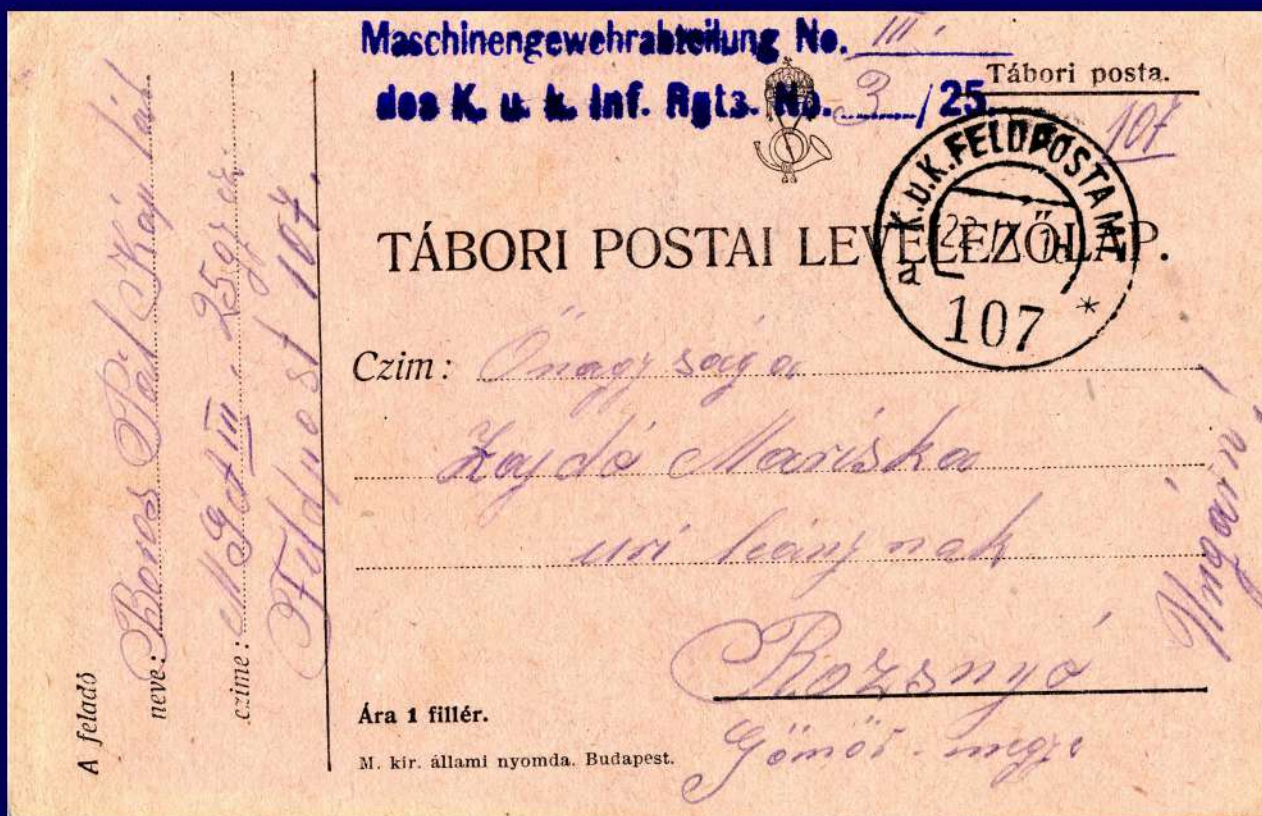 Maschinengewehrabteilung No. III.
des K. u. k. Inf. Rgts. No. 3/25
Tábori posta.
107
K.u.K. FELDPOSTAMT
a
107 *
TÁBORI POSTAI LEVELEZŐLAP.
Czim: Őnagysága
Zajdó Mariska
uri leánynak
Rozsnyó
Gömör-megye
Ungarn!
Ára 1 fillér.
M. kir. állami nyomda. Budapest.
A feladó
neve: Boros Pál
czime: MGA III. 25 gy. ez.
Feldpost 107.